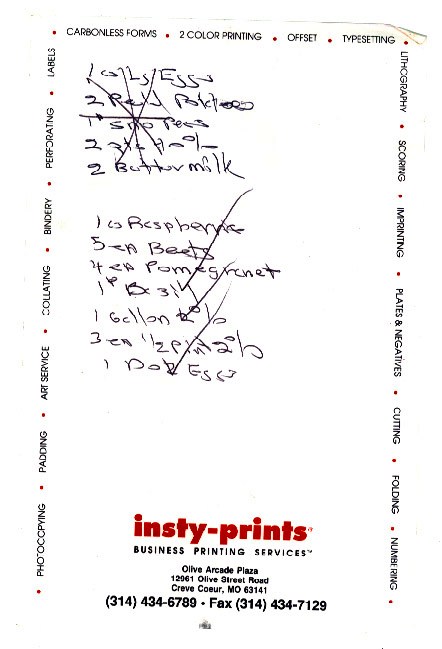 CARBONLESS FORMS • 2 COLOR PRINTING • OFFSET • TYPESETTING •
LITHOGRAPHY • SCORING • IMPRINTING • PLATES & NEGATIVES • CUTTING • FOLDING • NUMBERING •
• PHOTOCOPYING • PADDING • ART SERVICE • COLLATING • BINDERY • PERFORATING • LABELS •
1 cs Lg Eggs
2 Red Potatoes
1# Sno Peas
2
2 Buttermilk
1 cs Raspberrie
5 en Beets
4 en Pomegranet
1# Basil
1 Gallon 2%
3 en 1/2 pint 2%
1 Doz Eggs
insty-prints
BUSINESS PRINTING SERVICES™
Olive Arcade Plaza
12961 Olive Street Road
Creve Coeur, MO 63141
(314) 434-6789 • Fax (314) 434-7129